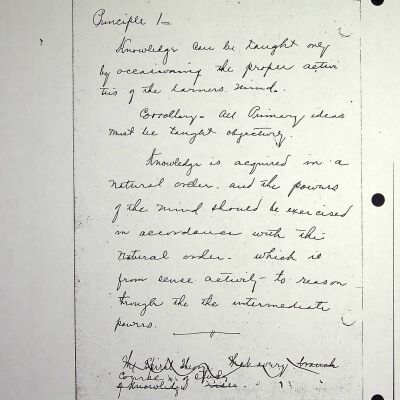 Principle 1=
Knowledge can be taught only
by occasioning the proper activi
ties of the learners mind.
Corrollary- All Primary ideas
must be taught objectively
Knowledge is acquired in a
natural order. and the powers
of the mind should be exercised
in accordance with the
natural order- which is
from sense activity- to reason
through the the intermediate
powers.
The Spiral Theory That every branch
Course of Study
of knowledge